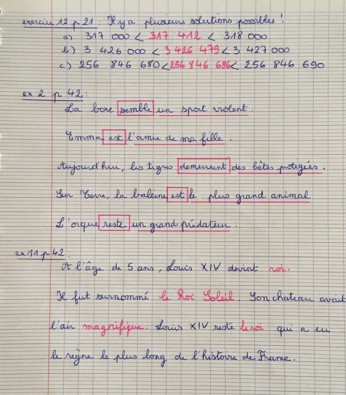 exercice 12 p 21 : Il y a plusieurs solutions possibles !
a) 317 000 < 317 412 < 318 000
b) 3 426 000 < 3 426 479 < 3 427 000
c) 256 846 680 < 256 846 686 < 256 846 690
ex 2 p 42 :
La boxe semble un sport violent.
Emma est l'amie de ma fille.
Aujourd'hui, les tigres demeurent des bêtes protégées.
Sur Terre, la baleine est le plus grand animal
L'orque reste un grand prédateur.
ex 11 p 42
A l'âge de 5 ans, Louis XIV devint roi.
Il fut surnommé le Roi Soleil. Son chateau avait
l'air magnifique. Louis XIV reste le roi qui a eu
le règne le plus long de l'histoire de France.